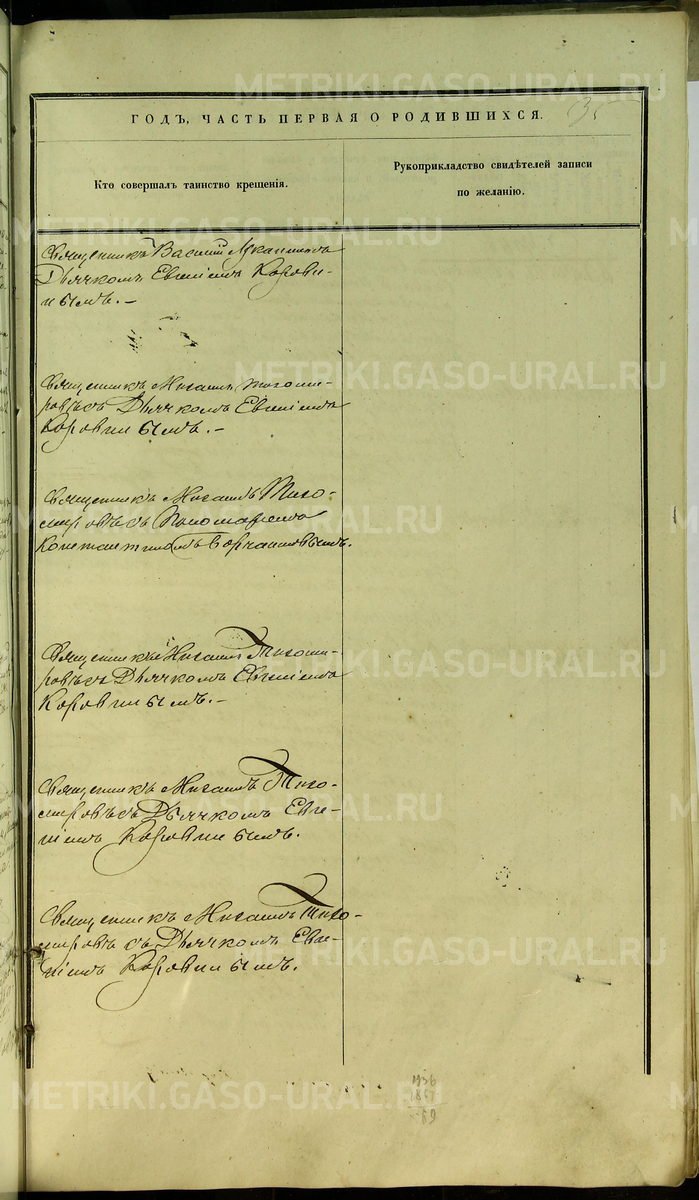 METRIKI.GASO-URAL.RU
ГОДЪ, ЧАСТЬ ПЕРВАЯ О РОДИВШИХСЯ.
35
Кто совершалъ таинство крещенія.
Рукоприкладство свидѣтелей записи
по желанію.
Священникъ Василій
Дьячкомъ Евгеніемъ Корови-
нымъ. -
Священникъ Михаилъ Тихоми-
ровъ съ Дьячкомъ Евгеніемъ
Коровинымъ. -
Священникъ Михаилъ Тихо-
мировъ съ Пономаремъ
Константиномъ
Священникъ Михаилъ Тихоми-
ровъ съ Дьячкомъ Евгеніемъ
Коровинымъ. -
Священникъ Михаилъ Тихо-
мировъ съ Дьячкомъ Евге-
ніемъ Коровинымъ.
Священникъ Михаилъ Тихо-
мировъ съ Дьячкомъ Евге-
ніемъ Коровинымъ.
1936
1867
69